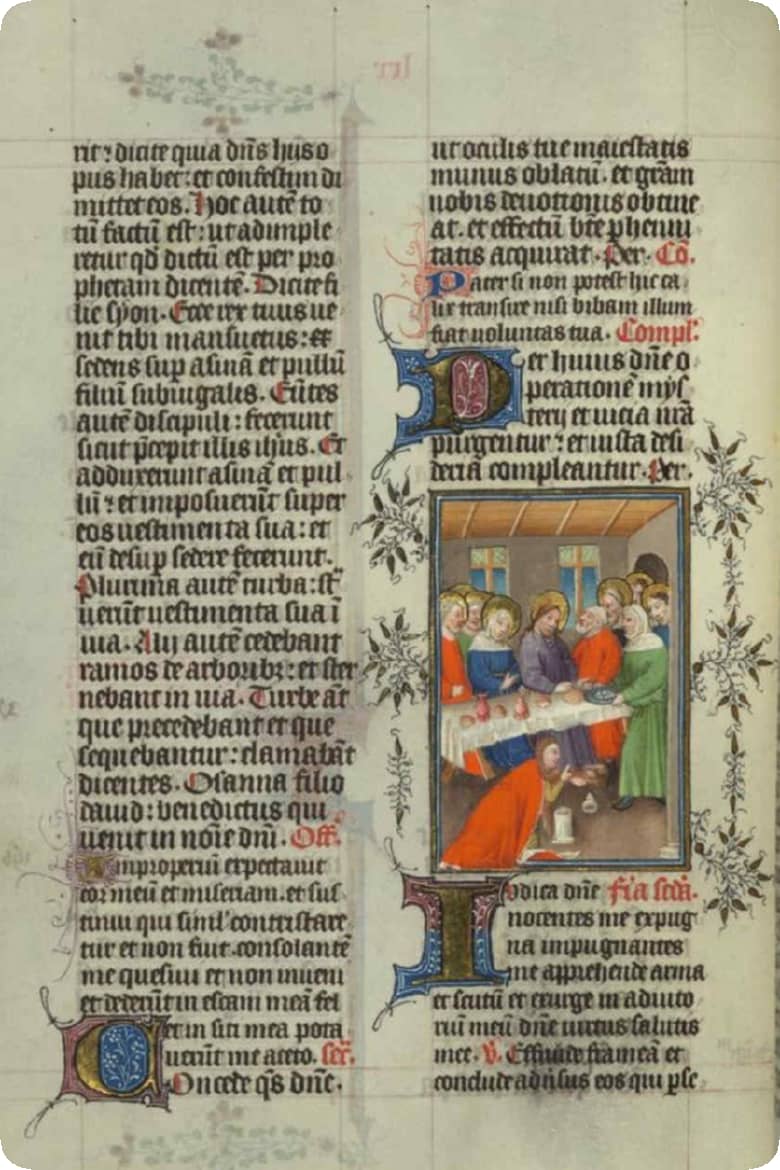 rit : dicite quia dñs hijs o
pus habet : et confestim di
mittet eos. Hoc autē to
tū factū est : ut adimple
retur qđ dictū est per pro
phetam dicentē. Dicite fi
lie syon. Ecce rex tuus ue
nit tibi mansuetus : et
sedens sup asinā et pullū
filiū subiugalis. Eūtes
autē discipuli : fecerunt
sicut p̄cepit illis ih̄us. Et
adduxerunt asinā et pul
lū : et imposuerūt super
eos uestimenta sua : et
eū desup sedere fecerunt.
Plurima autē turba : st̄
uerūt uestimenta sua ī
uia. Alij autē cedebant
ramos de arboribz : et ster
nebant in uia. Turbe aūt
que precedebant et que
sequebantur : clamabāt
dicentes. Osanna filio
dauid : benedictus qui
uenit in noīe dnī. Off.
Improperiū expectauit
cor meū et miseriam. et sus
tinui qui simĺ contristare
tur et non fuit. consolantē
me quesiui et non inueni
et dederūt in escam meā fel
et in siti mea pota
uerūt me aceto. Secr.
Oncede qs̄ dnē.
C
ut oculis tue maiestatis
munus oblatū. et grām
nobis deuotionis obtine
at. et effectū bt̄e phenni
tatis acquirat. Per. Cō.
Pater si non potest hic ca
lix transire nisi bibam illum
fiat uoluntas tua. Compl.
Per huius dnē o
perationē mys
terij et uicia nrā
purgentur : et iusta desi
deria compleantur. Per.
Iudica dnē fr̄ia scđa.
nocentes me expug
na impugnantes
me apprehende arma
et scutū et exurge in adiuto
riū meū dnē uirtus salutis
mee. V. Effunde frameā et
conclude adusus eos qui pse